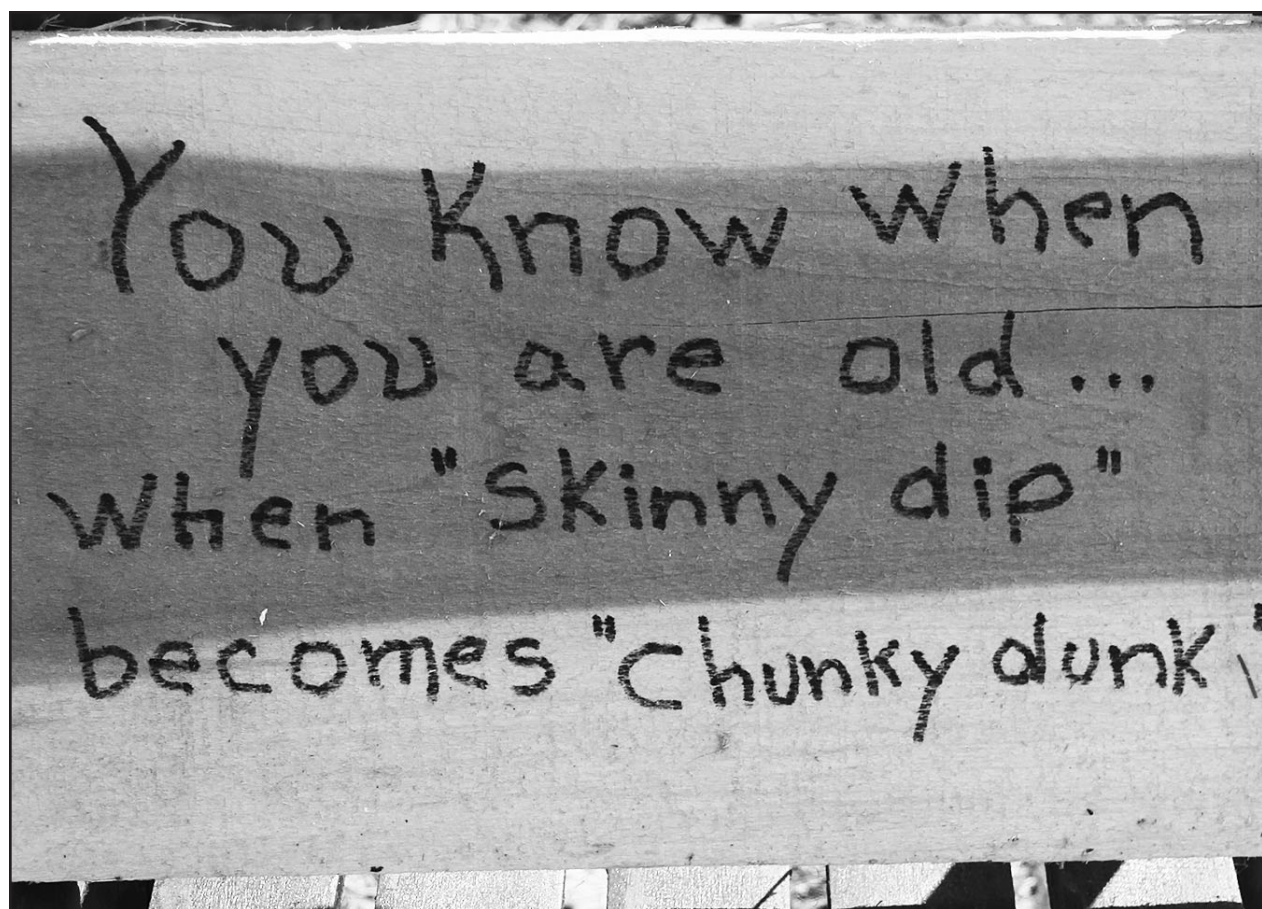 You Know When
you are old...
When "skinny dip"
becomes "chunky dunk"